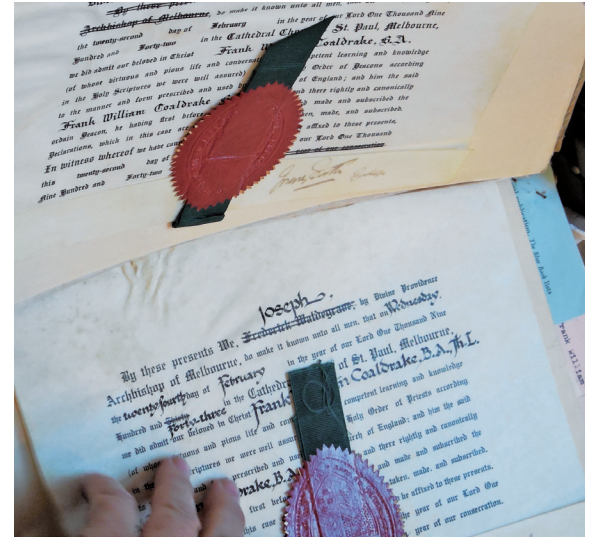 By these pres
Archbishop of Melbourne, do make it known unto all men,
the twenty-second day of February in the year of our Lord One Thousand Nine
Hundred and Forty-two in the Cathedral Ch St. Paul, Melbourne,
we did admit our beloved in Christ Frank W Coaldrake, B.A.
(of whose virtuous and pious life and conversa petent learning and knowledge
in the Holy Scriptures we were well assured) Order of Deacons according
to the manner and form prescribed and used by of England; and him the said
Frank William Coaldrake there rightly and canonically
ordain Deacon, he having first before made and subscribed the
Declarations, which in this case a en, made, and subscribed.
In witness whereof we have cause affixed to these presents,
this twenty-second day of our Lord One Thousand
Nine Hundred and Forty-two of our consecration.
Joseph
By these presents We, Frederick Waldegrave, by Divine Providence
Archbishop of Melbourne, do make it known unto all men, that on Wednesday,
the twenty fourth day of February in the year of our Lord One Thousand Nine
Hundred and Forty-three in the Cathed of St. Paul, Melbourne,
we did admit our beloved in Christ Frank m Coaldrake, B.A., Th.L.
(of whose virtuous and pious life and con competent learning and knowledge
riptures we were well assu Holy Order of Priests according
prescribed and used rch of England; and him the said
rake, B.A. and there rightly and canonically
first bef and made and subscribed the
this case taken, made, and subscribed.
be affixed to these presents,
the year of our Lord One
year of our consecration.
The Blue Book lists
rank william